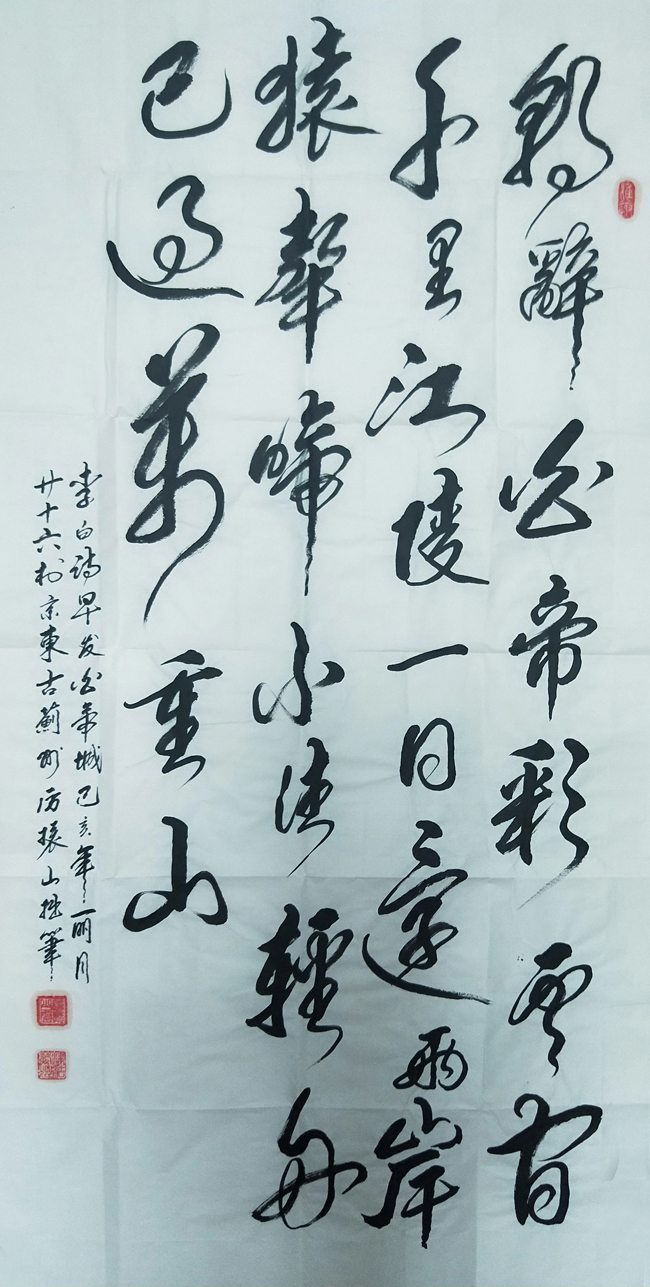 朝辭白帝彩雲間
千里江陵一日還兩岸
猿聲啼不住輕舟
已過萬重山
李白詩早发白帝城己亥年丽月
廿十六於京東古薊州厉振山拙筆